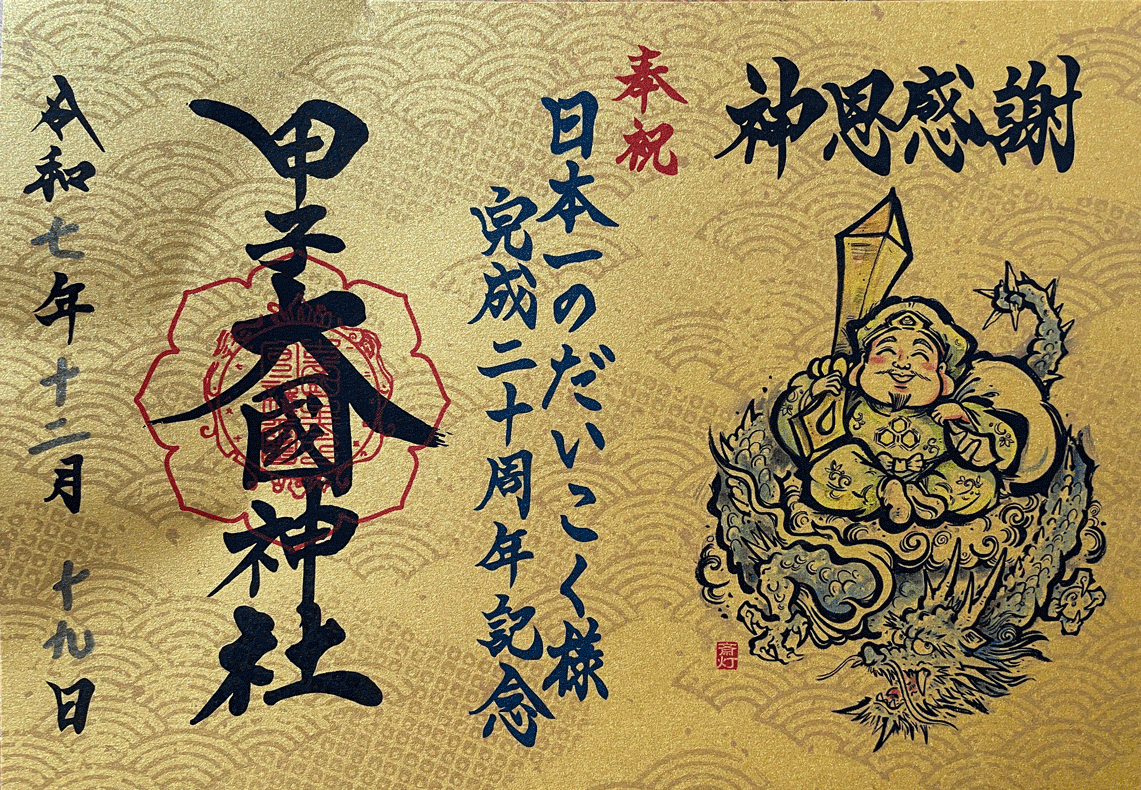 神恩感謝
奉祝
日本一のだいこく様
完成二十周年記念
甲子大國神社
令和七年十二月十九日
斎灯